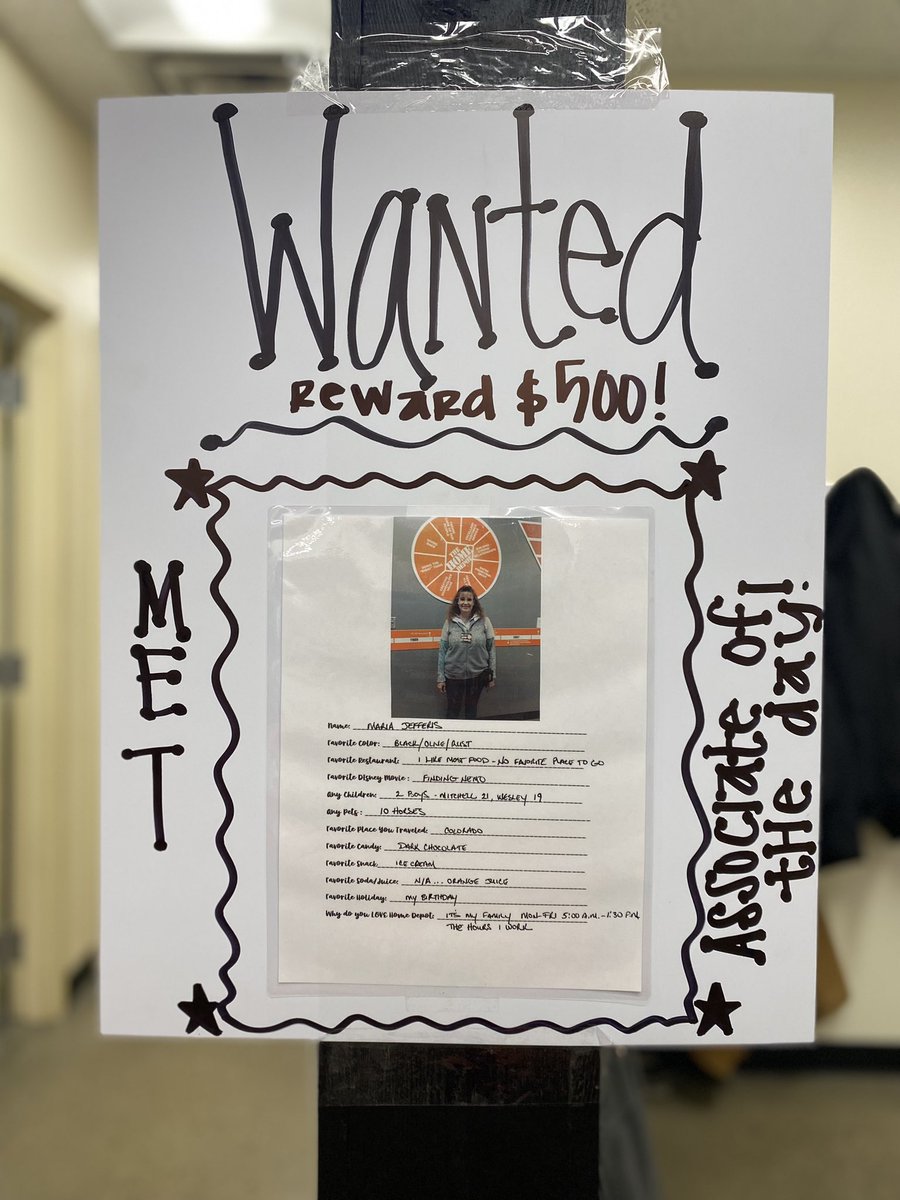 Wanted
REWARD $500!
MET
ASSOCIATE of
the day!
THE
HOME
DEPOT
Name: MARIA JEFFERIS
Favorite Color: BLACK/OLIVE/RUST
Favorite Restaurant: I LIKE MOST FOOD - NO FAVORITE PLACE TO GO
Favorite Disney Movie: FINDING NEMO
Any Children: 2 BOYS - MITCHELL 21, WESLEY 19
Any Pets: 10 HORSES
Favorite Place You Traveled: COLORADO
Favorite Candy: DARK CHOCOLATE
Favorite Snack: ICE CREAM
Favorite Soda/Juice: N/A... ORANGE JUICE
Favorite Holiday: MY BIRTHDAY
Why do you LOVE Home Depot: ITS MY FAMILY MON-FRI 5:00 A.M. - 1:30 P.M.
THE HOURS I WORK